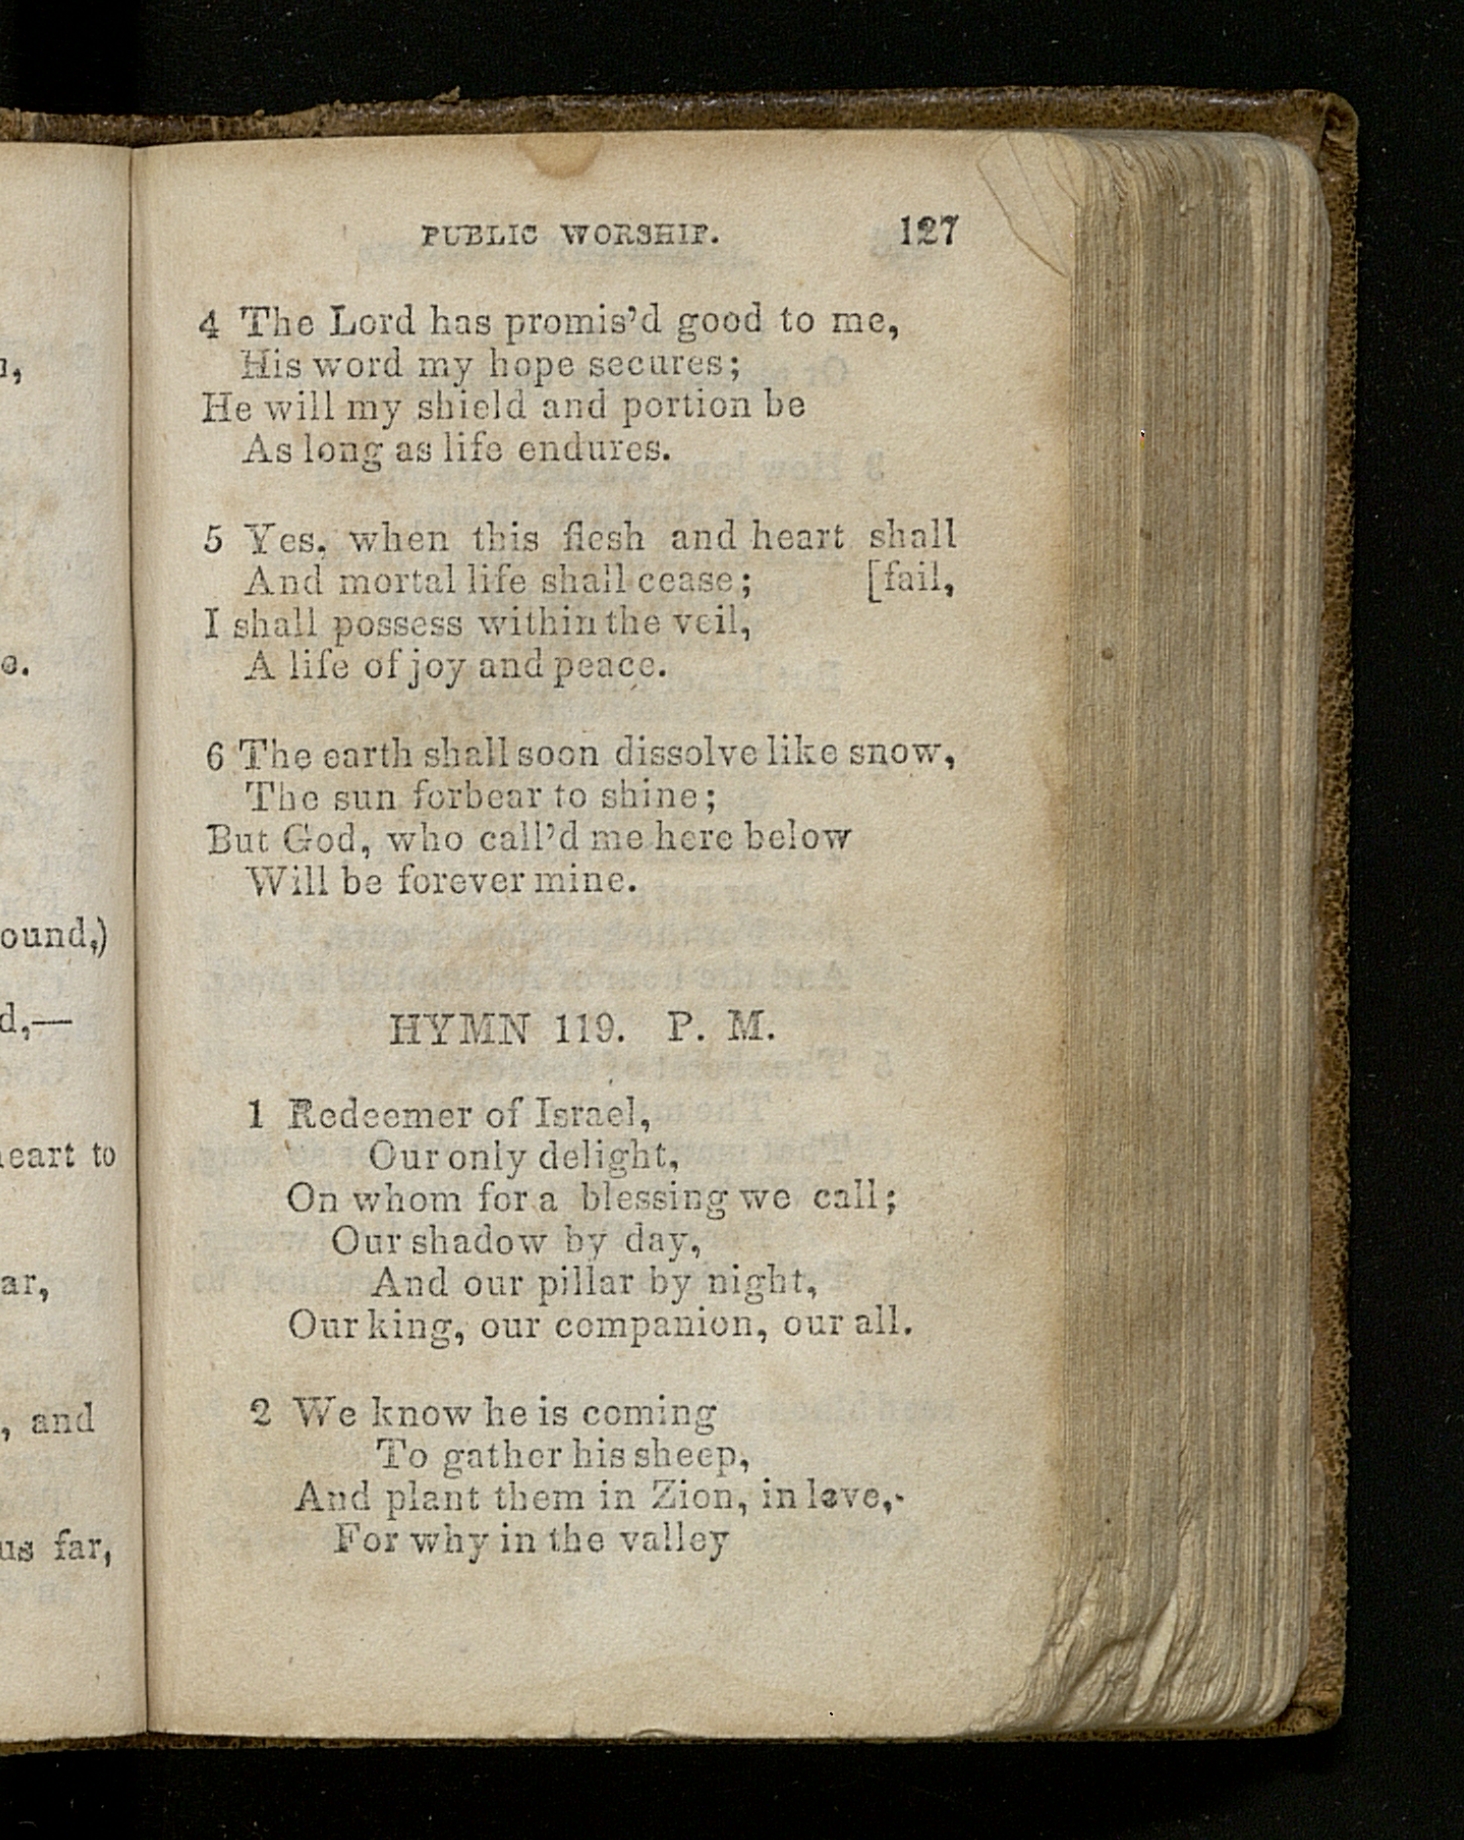 n,
e.
ound,)
d,—
heart to
ar,
, and
us far,
PUBLIC WORSHIP. 127
4 The Lord has promis’d good to me,
His word my hope secures;
He will my shield and portion be
As long as life endures.
5 Yes, when this flesh and heart shall
And mortal life shall cease; [fail,
I shall possess within the veil,
A life of joy and peace.
6 The earth shall soon dissolve like snow,
The sun forbear to shine;
But God, who call’d me here below
Will be forever mine.
HYMN 119. P. M.
1 Redeemer of Israel,
Our only delight,
On whom for a blessing we call;
Our shadow by day,
And our pillar by night,
Our king, our companion, our all.
2 We know he is coming
To gather his sheep,
And plant them in Zion, in love,
For why in the valley